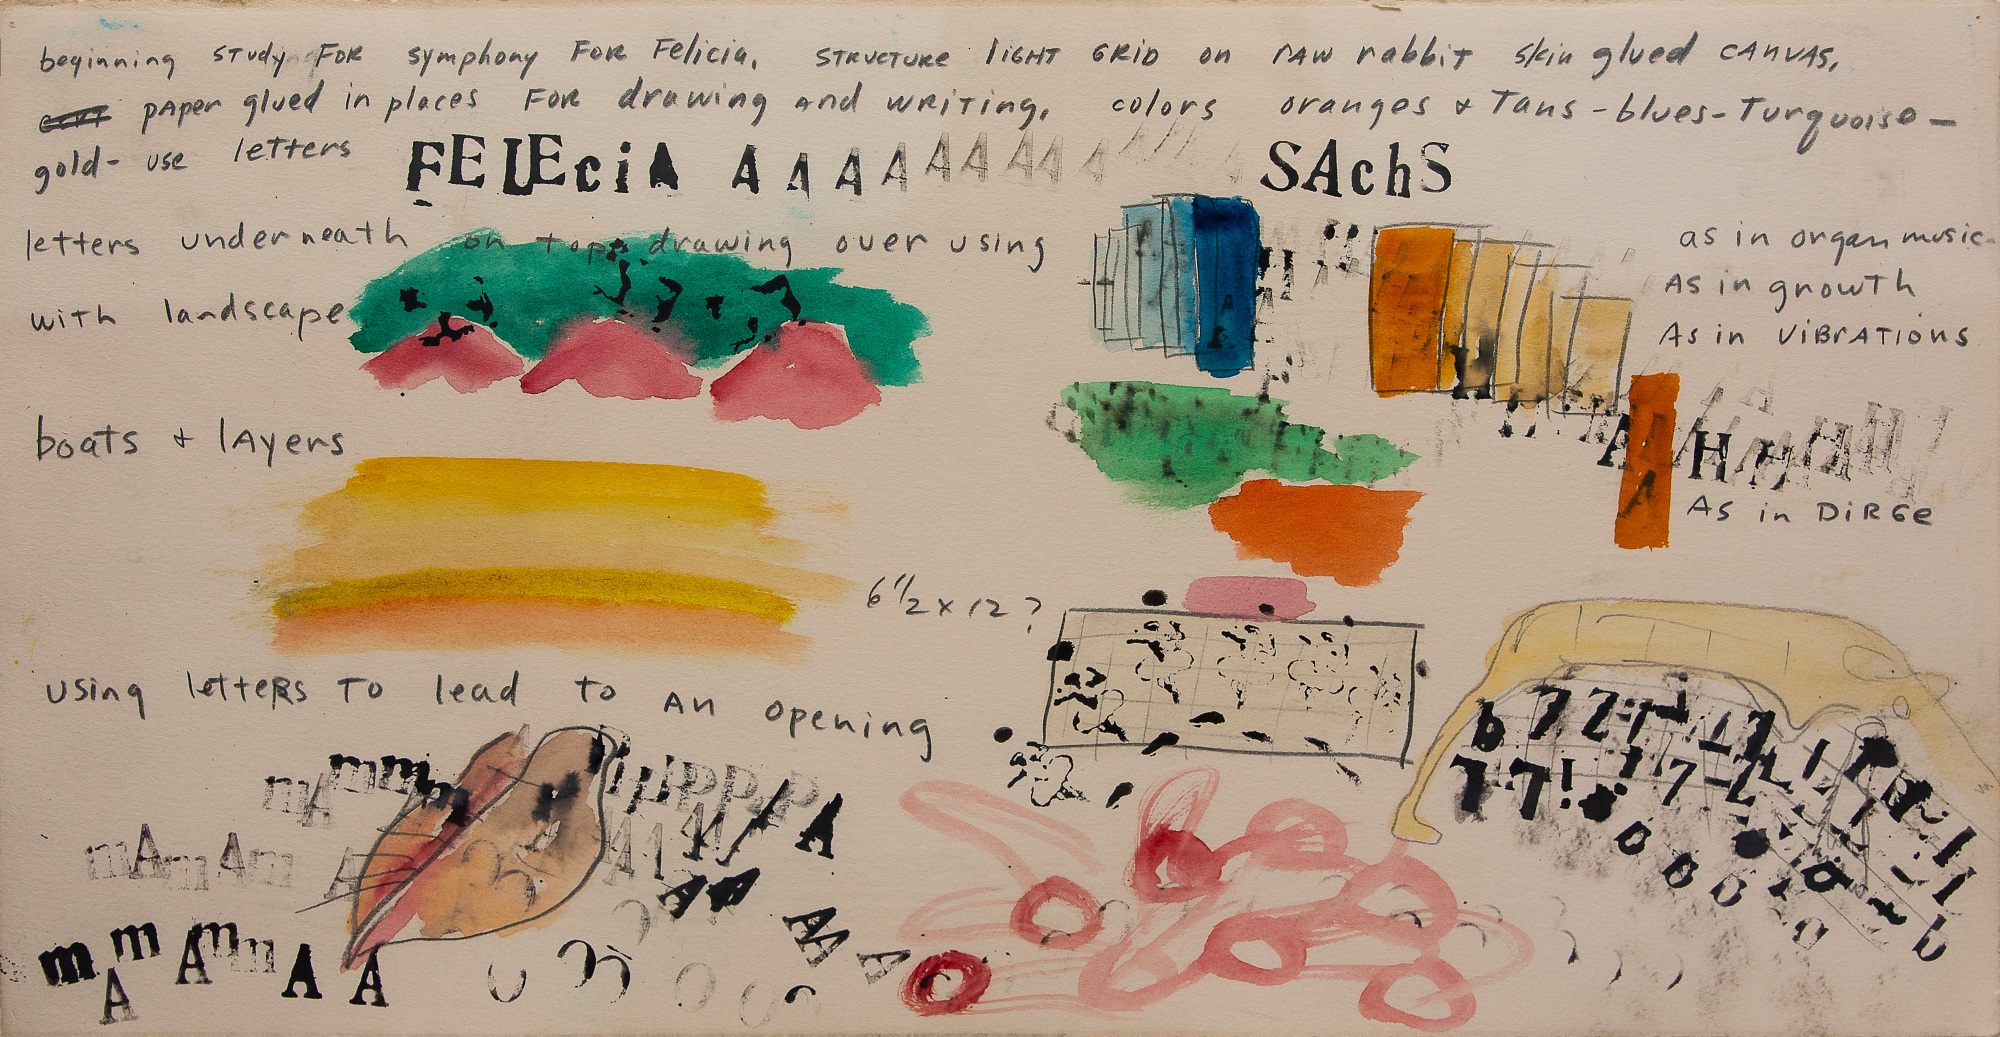 beginning study FOR symphony FOR Felicia, STRUCTURE lIGHT GRID on rAW rabbit skin glued CANVAS,
pAper glued in places FOR drawing and WRITING, colors oranges + Tans - blues - Turquoise -
gold - use letters
FELEciA A A A A A A A A A SAchS
letters underneath on top drawing over using
with landscape
as in organ music
As in growth
As in ViBrATIONS
boats + lAyers
As in DiRGe
6 1/2 x 12 ?
using letteRs To lead to An opening
mAmmm
mAmAm
mAmAmmm A A